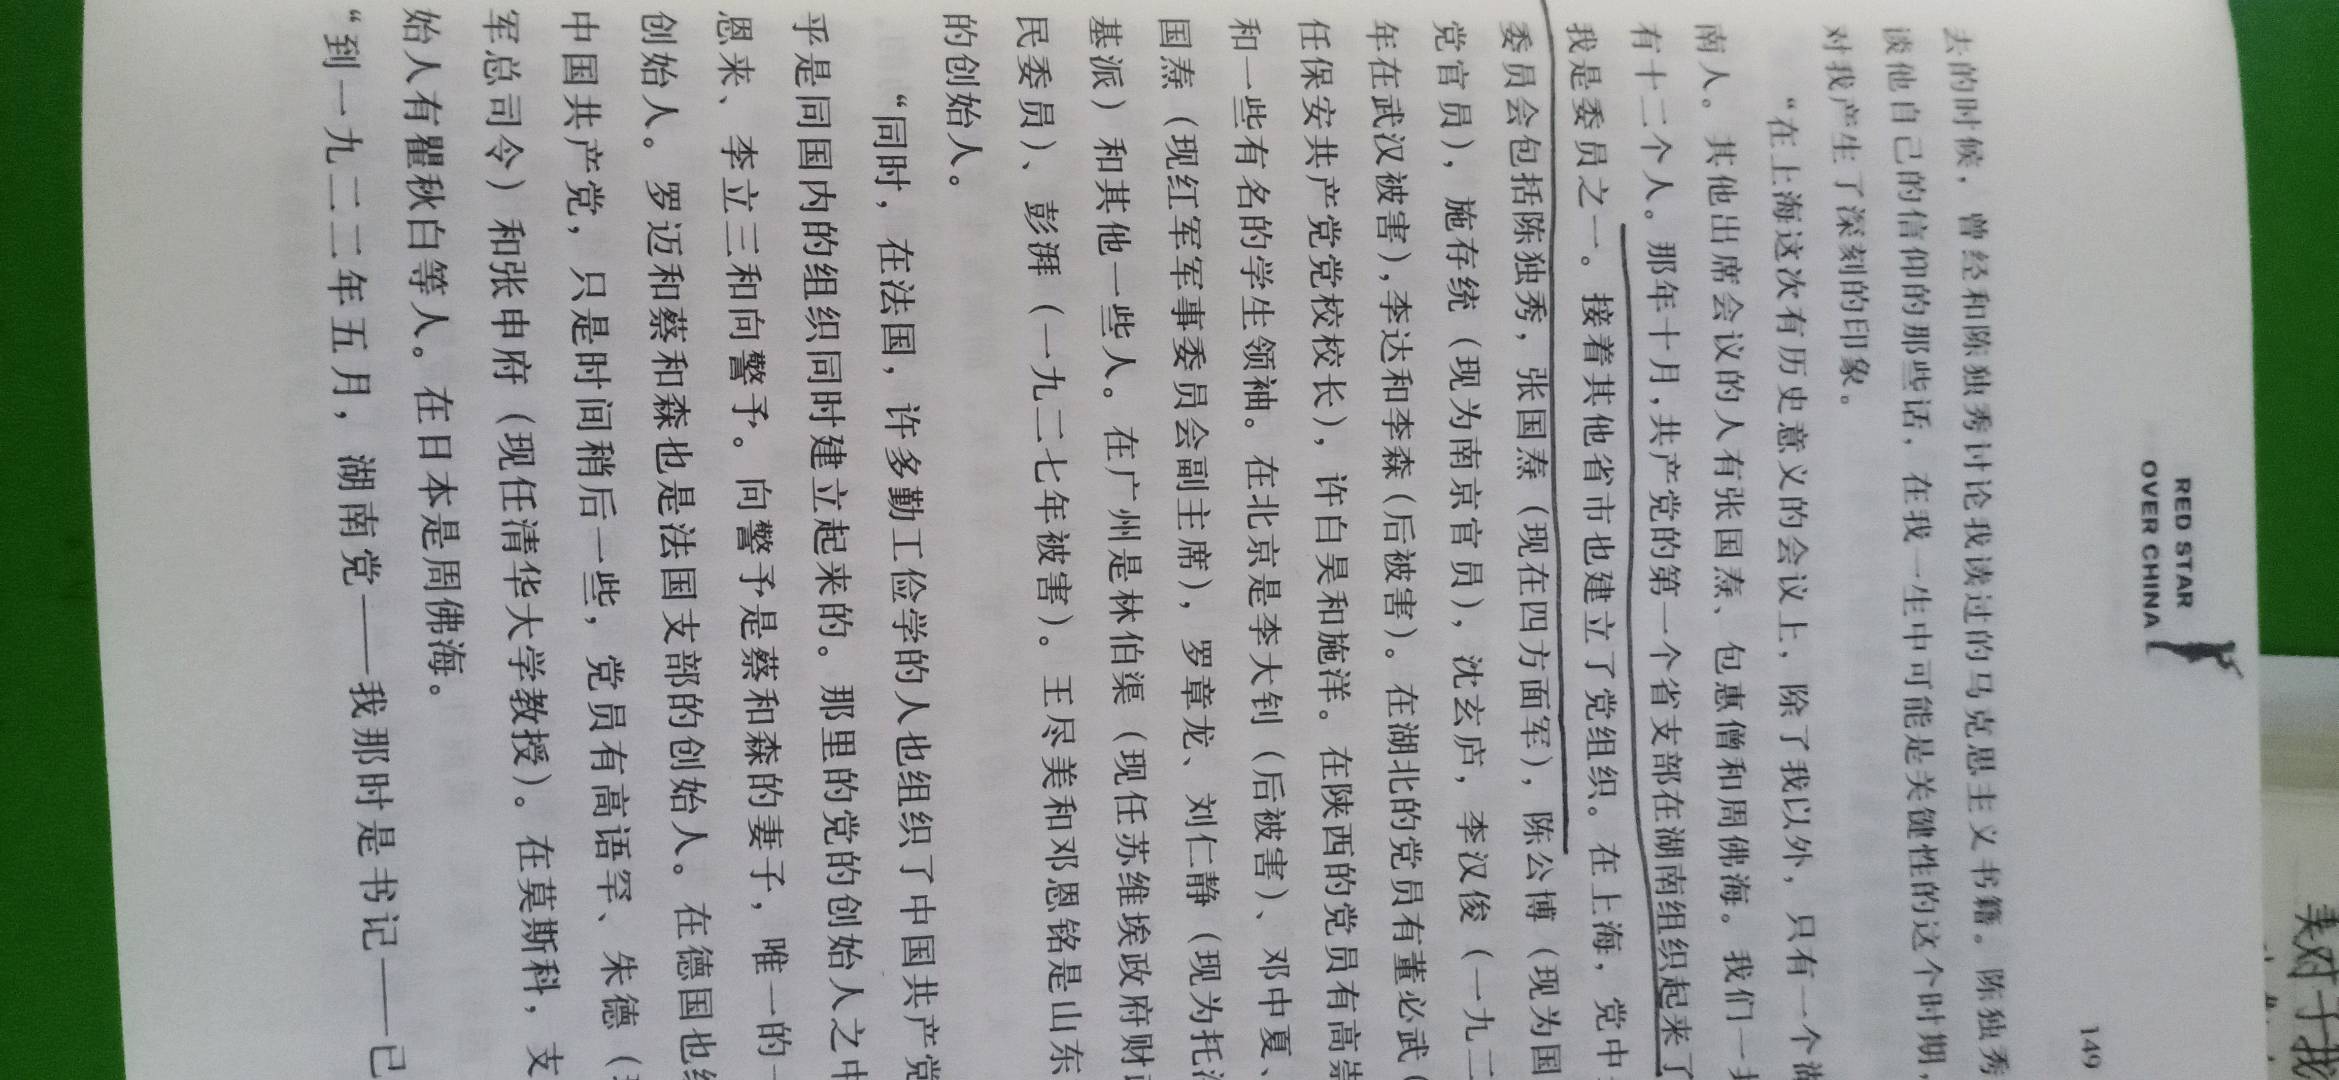 RED STAR
OVER CHINA
149
去的时候，曾经和陈独秀讨论我读过的马克思主义书籍。陈独秀
谈他自己的信仰的那些话，在我一生中可能是关键性的这个时期，
对我产生了深刻的印象。
“在上海这次有历史意义的会议上，除了我以外，只有一个湖
南人。其他出席会议的人有张国焘、包惠僧和周佛海。我们一共
有十二个人。那年十月，共产党的第一个省支部在湖南组织起来了
我是委员之一。接着其他省市也建立了党组织。在上海，党中
委员会包括陈独秀，张国焘（现在四方面军），陈公博（现为国
党官员），施存统（现为南京官员），沈玄庐，李汉俊（一九二
年在武汉被害），李达和李森（后被害）。在湖北的党员有董必武（
任保安共产党党校校长），许白昊和施洋。在陕西的党员有高崇
和一些有名的学生领袖。在北京是李大钊（后被害）、邓中夏、
国焘（现红军军事委员会副主席），罗章龙、刘仁静（现为托洛
基派）和其他一些人。在广州是林伯渠（现任苏维埃政府财
民委员）、彭湃（一九二七年被害）。王尽美和邓恩铭是山东
的创始人。
“同时，在法国，许多勤工俭学的人也组织了中国共产党
乎是同国内的组织同时建立起来的。那里的党的创始人之中
恩来、李立三和向警予。向警予是蔡和森的妻子，唯一的
创始人。罗迈和蔡和森也是法国支部的创始人。在德国也组
中国共产党，只是时间稍后一些，党员有高语罕、朱德（
军总司令）和张申府（现任清华大学教授）。在莫斯科，支
始人有瞿秋白等人。在日本是周佛海。
“到一九二二年五月，湖南党——我那时是书记——已
美对于我